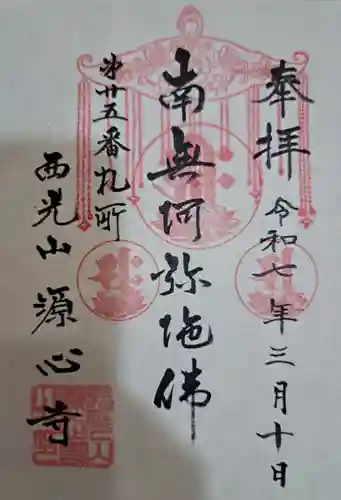 奉拝
令和七年三月十日
南無阿弥陀佛
第廿五番札所
西光山源心寺